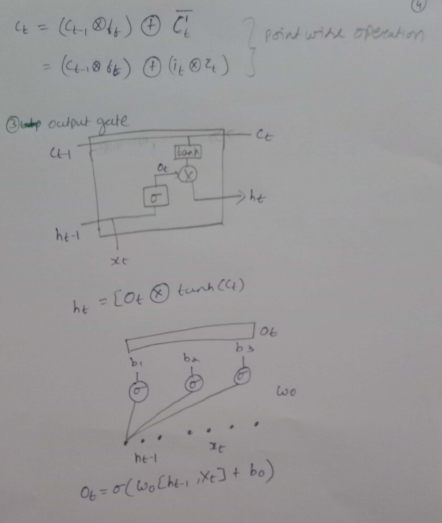 4
Ct = (Ct-1 ⊗ ft) ⊕ C̅t } point wise operation
= (Ct-1 ⊗ ft) ⊕ (it ⊗ Zt)
③ output gate
Ct-1
Ct
tanh
Ot
X
σ
ht
ht-1
xt
ht = [Ot ⊗ tanh(Ct)
Ot
b1 b2 b3
σ σ σ
Wo
ht-1 xt
Ot = σ(Wo[ht-1, xt] + bo)